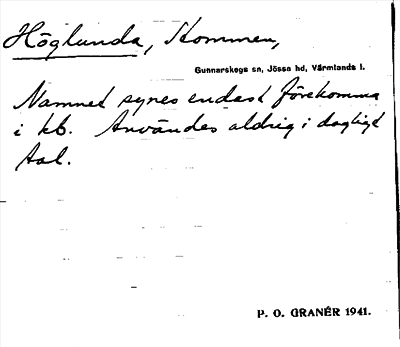 Höglunda, Kommen,
Gunnarskogs sn, Jösse hd, Värmlands l.
Namnet synes endast förekomma
i kb. Användes aldrig i dagligt
tal.
P. O. GRANÉR 1941.